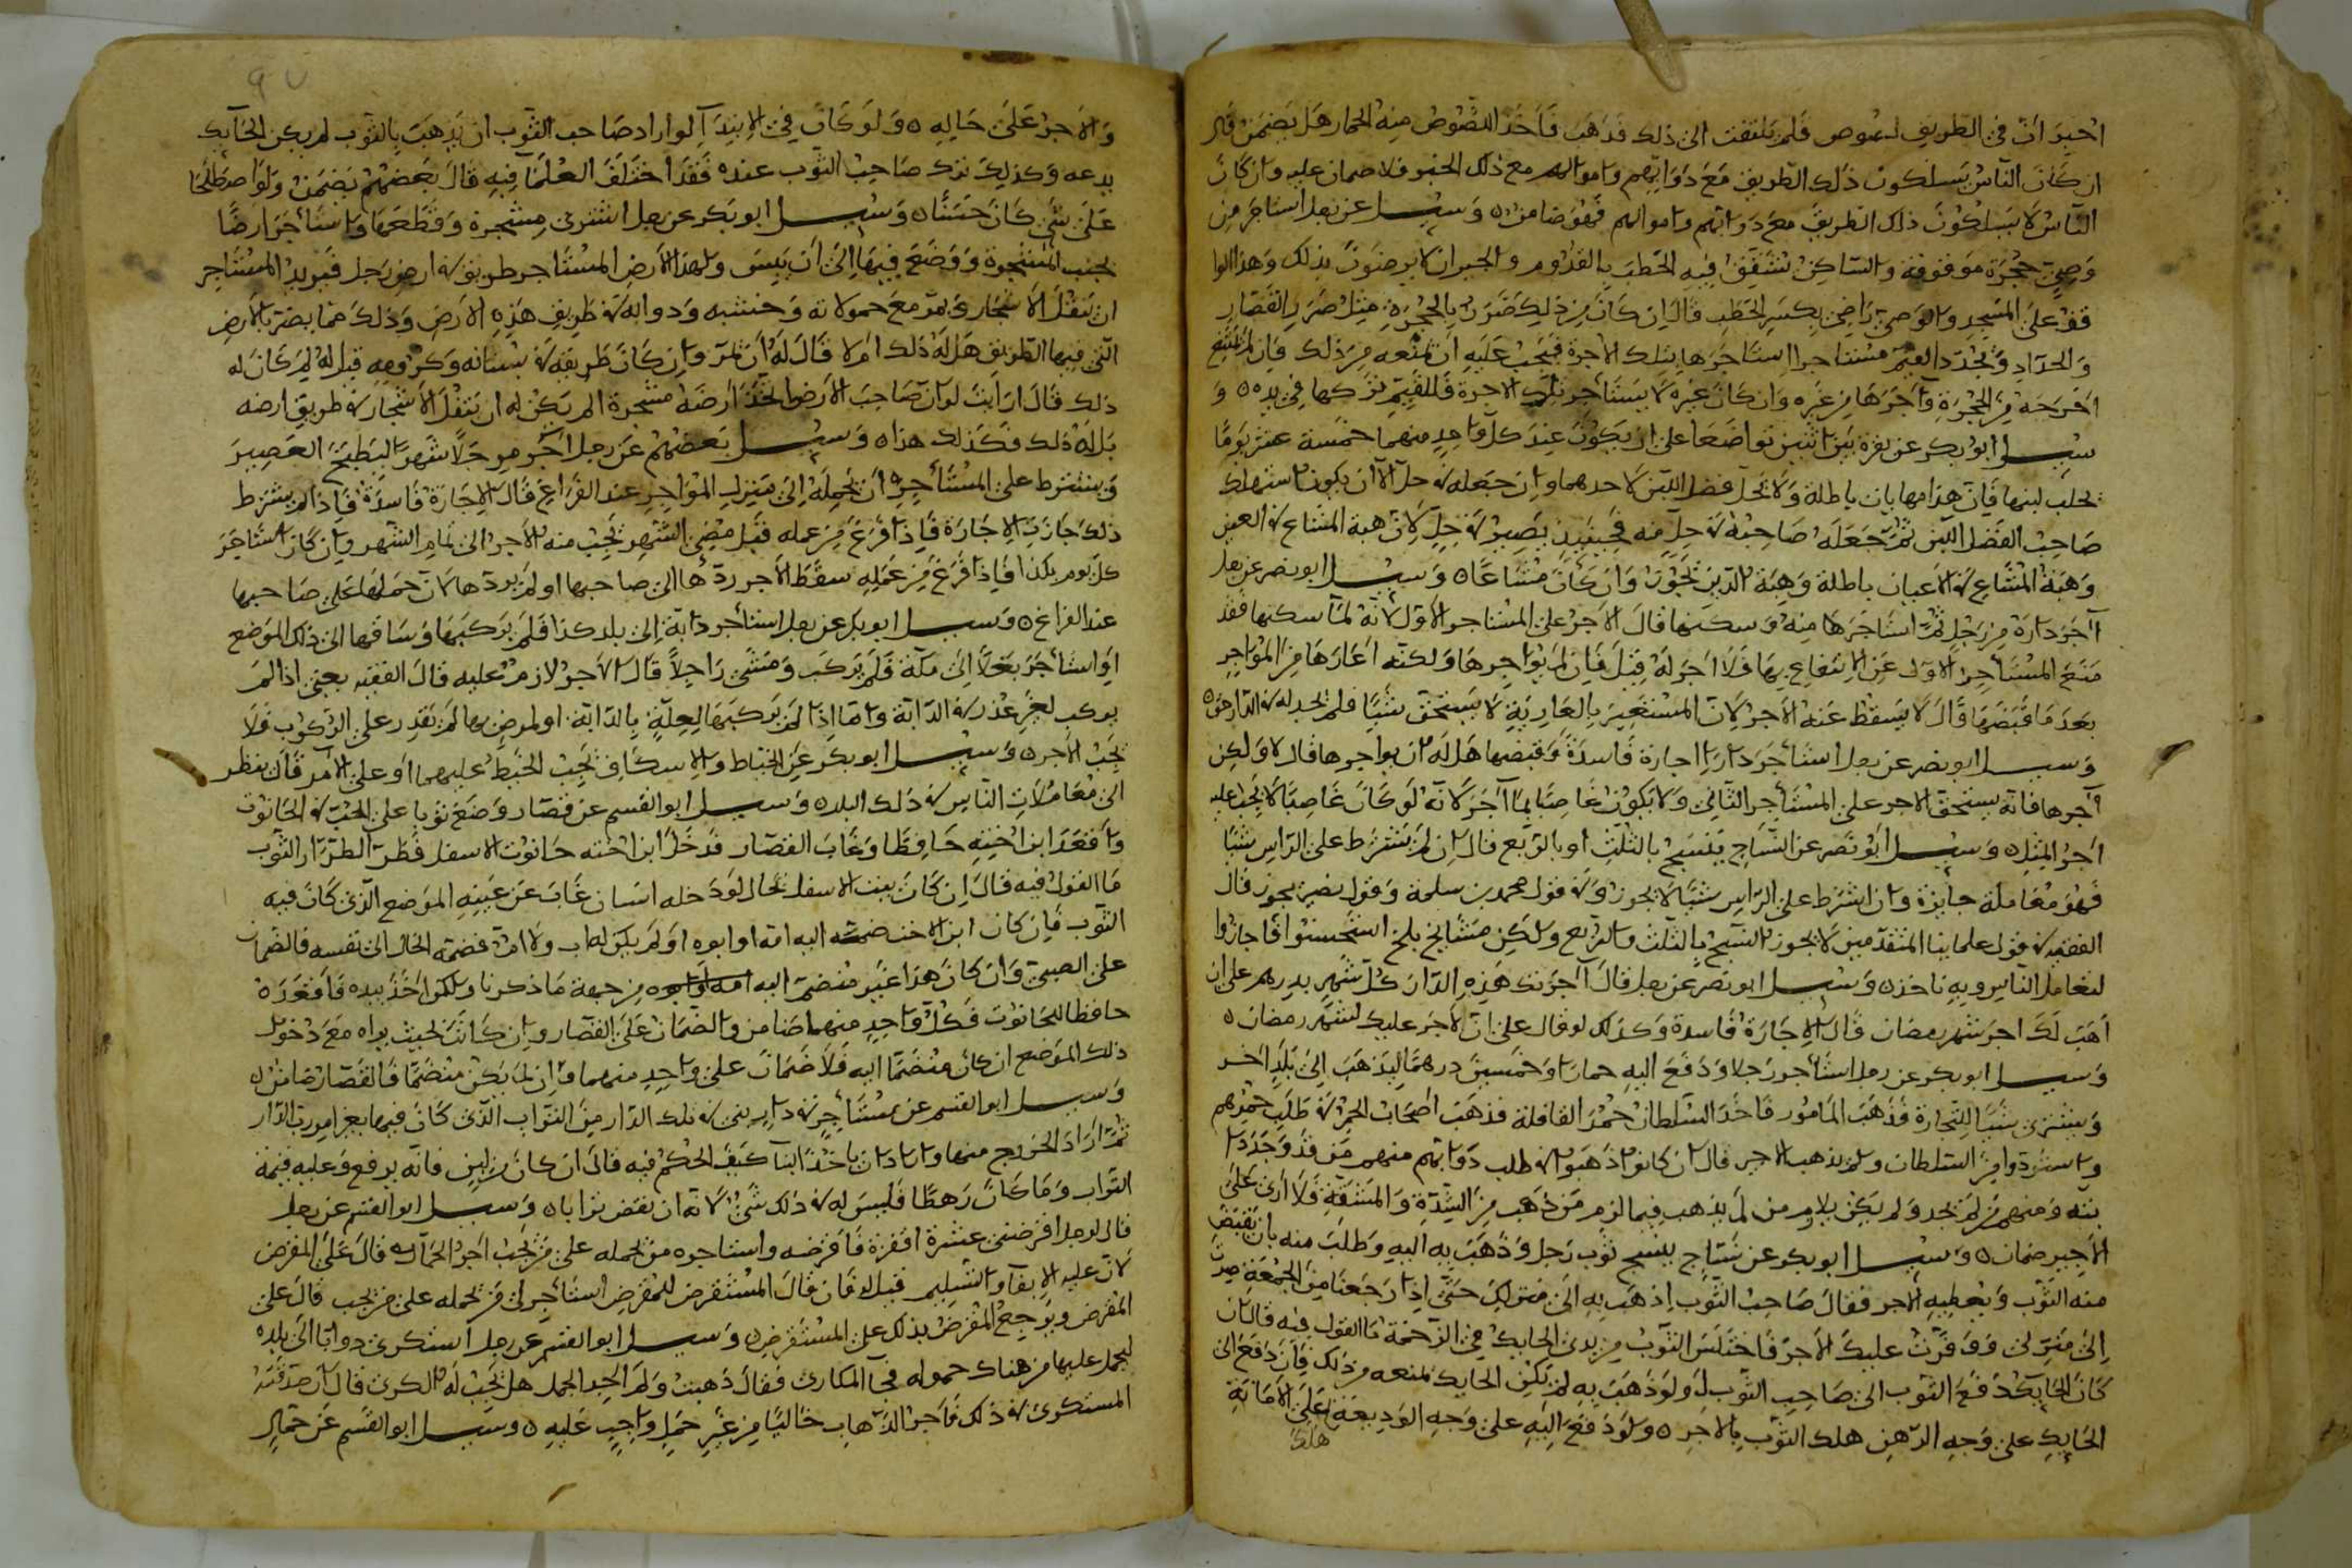 اخبر ان في الطريق لصوص فلم يلتفت الى ذلك فذهب فاخذ اللصوص منه الحمار هل يضمن قال
ان كان الناس يسلكون ذلك الطريق مع دوابهم واموالهم مع ذلك الخبر فلا ضمان عليه وان كان
الناس لا يسلكون ذلك الطريق مع دوابهم واموالهم فهو ضامن ه وسيل عن رجل استاجر من
وصي حجرة موقوفة والساكن يشقق فيه الحطب بالقدوم والجيران لا يرضون بذلك وهذا
وقف على المسجد والوصي راضي بكسر الحطب قال ان كان من ذلك ضرر بالحجرة مثل ضرر القصار
والحداد ويجد القيم مستاجرا استاجرها بتلك الاجرة فيجب عليه ان يمنعه من ذلك فان لم يمتنع
اخرجه من الحجرة وآجرها من غيره وان كان غيره لا يستاجر بتلك الاجرة فللقيم تركها في يده ه و
سيل ابو بكر عن بقرة بين اثنين تواضعا على ان يكون عند كل واحد منهما خمسة عشر يوما
يحلب لبنها فان هذا مهاياة باطلة ولا يحل فضل اللبن لاحدهما وان جعله في حل الا ان يكون استهلك
صاحب الفضل اللبن ثم جعله صاحبه في حل منه فحينيذ يصير في حل لان هبة المشاع في العين
وهبة المشاع في الاعيان باطلة وهبة الدين تجوز وان كان مشاعا ه وسيل ابو نصر عن رجل
آجر داره من رجل ثم استاجرها منه وسكنها قال الاجر على المستاجر الاول لانه لما سكنها فقد
منع المستاجر الاول عن الانتفاع بها فلا اجر له قيل فان لم يواجرها ولكنه اعارها من المواجر
بعد ما قبضها قال لا يسقط عنه الاجر لان المستعير بالعارية لا يستحق شيئا
وسيل ابو نصر عن رجل استاجر دارا اجارة فاسدة وقبضها هل له ان يواجرها قال لا ولكن
آجرها فانه يستحق الاجر على المستاجر الثاني ولا يكون غاصبا بما آجر لانه لو كان غاصبا لا يجب عليه
اجر المثل ه وسيل ابو نصر عن النساج ينسج بالثلث او بالربع قال ان لم يشترط على الراس شيئا
فهو معاملة جايزة وان اشترط على الراس شيئا لا يجوز وفي قول محمد بن سلمة وقول نصير يجوز قال
الفقيه في قول علماينا المتقدمين لا يجوز النسج بالثلث والربع ولكن مشايخ بلخ استحسنوا فاجازوا
لتعامل الناس وبه ناخذ ه وسيل ابو نصر عن رجل قال آجرتك هذه الدار كل شهر بدرهم على ان
اهب لك اجر شهر رمضان قال الاجارة فاسدة وكذلك لو قال على ان لا اجر عليك لشهر رمضان ه
وسيل ابو بكر عن رجل استاجر رجلا ودفع اليه حمارا وخمسين درهما ليذهب الى بلد آخر
ويشتري شيئا للتجارة فذهب المامور فاخذ السلطان حمر القافلة فذهب اصحاب الحمر في طلب حمرهم
واستردوا من السلطان ولم يذهب الاجير قال ان كانوا ذهبوا في طلب دوابهم منهم من قد وجد
بته ومنهم من لم يجد ولم يكن يلام من لم يذهب فيما لزم من ذهب من الشدة والمشقة فلا ارى على
الاجير ضمان ه وسيل ابو بكر عن نساج ينسج ثوب رجل وذهب به اليه وطلب منه بان يقبض
منه الثوب ويعطيه الاجر فقال صاحب الثوب اذهب به الى منزلك حتى اذا رجعنا من الجمعة صرت
الى منزلي ووفرت عليك الاجر فاختلس الثوب من يدي الحايك في الزحمة ما القول فيه قال ان
كان الحايك دفع الثوب الى صاحب الثوب او لو ذهب به لم يكن الحايك يمنعه من ذلك فان دفع الى
الحايك على وجه الرهن هلك الثوب بالاجر ه ولو دفع اليه على وجه الوديعة على الامانة
هلك
والاجر على حاله ه ولو كان في الابتدآ لو اراد صاحب الثوب ان يذهب بالثوب لم يكن الحايك
يدعه وكذلك ترك صاحب الثوب عنده فقد اختلف العلما فيه قال بعضهم يضمن ولو اصطلحا
على شي كان حسنا ه وسيل ابو بكر عن رجل اشترى مشجرة وقطعها واستاجر ارضا
بجنب المشجرة ووضع فيها الى ان ييبس ولهذا الارض المستاجر طريق في ارض رجل فيريد المستاجر
ان ينقل الاشجار ويمر مع حمولاته وخشبه ودوابه في طريق هذه الارض وذلك مما يضر بالارض
التي فيها الطريق هل له ذلك ام لا قال له ان يمر وان كان طريقه في بستانه وكرومه قيل له لم كان له
ذلك قال ارايت لو ان صاحب الارض اتخذ ارضه مشجرة الم يكن له ان ينقل الاشجار في طريق ارضه
بل له ذلك فكذلك هذا ه وسيل بعضهم عن رجل آجر مرجلا شهرا ليطبخ العصير
ويشترط على المستاجر ان يحمله الى منزل المواجر عند الفراغ قال الاجارة فاسدة فاذا لم يشترط
ذلك جازت الاجارة فاذا فرغ من عمله قبل مضي الشهر يجب منه الاجر الى تمام الشهر وان كان استاجر
كل يوم بكذا فاذا فرغ من عمله سقط الاجر ردها الى صاحبها او لم يردها لان حملها على صاحبها
عند الفراغ ه وسيل ابو بكر عن رجل استاجر دابة الى بلد كذا فلم يركبها وساقها الى ذلك الموضع
او استاجر بغلا الى مكة فلم يركب ومشى راجلا قال الاجر لازم عليه قال الفقيه يعني اذا لم
يركب لغير عذر في الدابة واما اذا لم يركبها لعلة بالدابة او لمرض بها لم يقدر على الركوب فلا
يجب الاجر ه وسيل ابو بكر عن الخياط والاسكاف يجب الخيط عليهما او على الآمر قال ينظر
الى معاملات الناس في ذلك البلد ه وسيل ابو القسم عن قصار وضع ثوبا على الحب في الحانوت
واقعد ابن اخته حافظا وغاب القصار فدخل ابن اخته حانوت الاسفل فطر الطرار الثوب
ما القول فيه قال ان كان بيت الاسفل بحال لو دخله انسان غاب عن عينه الموضع الذي كان فيه
الثوب فان كان ابن الاخت ضمته اليه امه او ابوه او لم يكن له اب ولا ام فضمه الخال الى نفسه فالضمان
على الصبي وان كان هذا غير منضم اليه من جهة ما ذكرنا ولكن اخذ بيده فاقعده
حافظا لحانوت فكل واحد منهما ضامن والضمان على القصار وان كانت بحيث يراه مع دخول
ذلك الموضع ان كان منضما اليه فلا ضمان على واحد منهما وان لم يكن منضما فالقصار ضامن ه
وسيل ابو القسم عن مستاجر في دار بنى في تلك الدار من التراب الذي كان فيها بغير امر رب الدار
ثم اراد الخروج منها واراد ان ياخذ البنآ كيف الحكم فيه قال ان كان من لبن فانه يرفع وعليه قيمة
التراب وما كان رهطا فليس له في ذلك شي لانه ان نقض ترابا ه وسيل ابو القسم عن رجل
قال لرجل اقرضني عشرة اقفزة فاقرضه واستاجره من يحمله على من يجب اجر الحمال قال على المقرض
لان عليه الايفآ والتسليم قيل له فان قال المستقرض للمقرض استاجر لي من يحمله على من يجب قال على
المقرض ويرجع المقرض بذلك على المستقرض ه وسيل ابو القسم عن رجل استكرى دوابا الى بلده
ليحمل عليها من هناك حموله فجآ المكاري فقال ذهبت ولم اجد الحمل هل يجب له الكرى قال ان صدقته
المستكري في ذلك فاجر الذهاب خاليا من غير حمل واجب عليه ه وسيل ابو القسم عن حمال